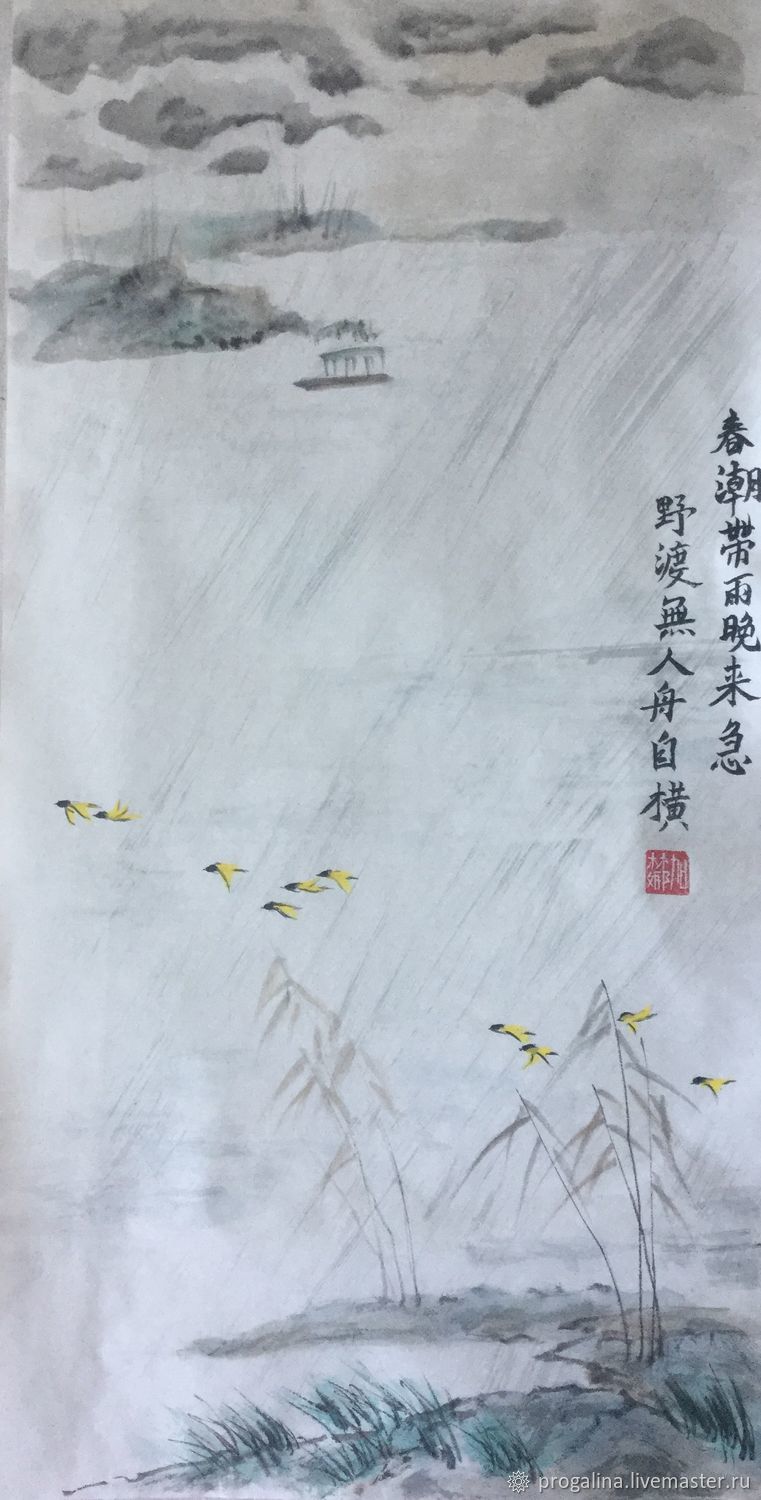 春潮帶雨晚来急
野渡無人舟自橫
progalina.livemaster.ru